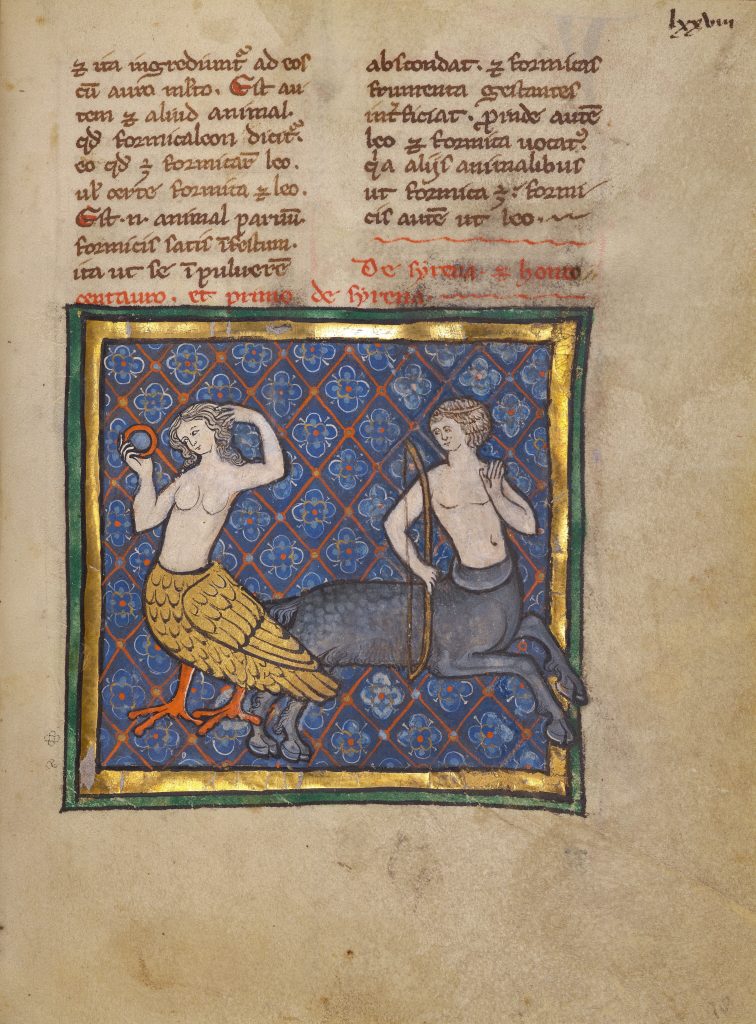 lxxviii
⁊ ita ingrediunt᷑ ad eos
cū auro mixto. Est au
tem ⁊ aliud animal.
qd̓ formicaleon dicit᷑.
eo qd̓ ē formicaꝝ leo.
ul̓ certe formica ⁊ leo.
Est .n. animal paruū.
formicis satis īfestum.
ita ut se ī puluerē
abscondat. ⁊ formicas
frumenta gestantes
int̓ficiat. proinde autē
leo ⁊ formica uocat᷑.
q̓a alijs animalibus
ut formica ē. formi
cis autē ut leo.
De syrena ⁊ homo
centauro. et primo de syrena.